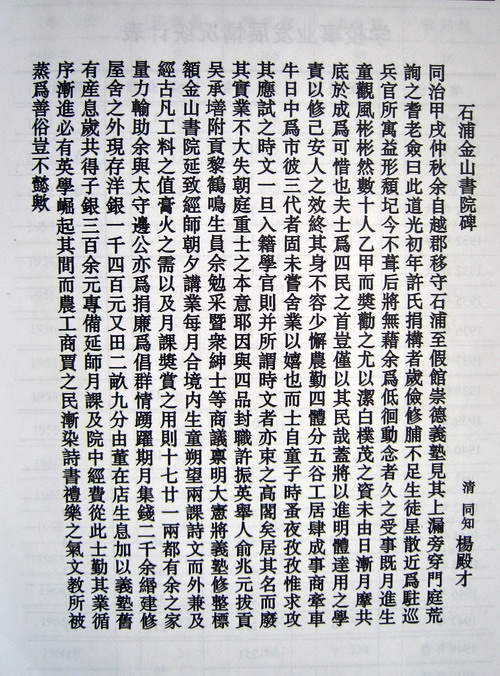 石浦金山書院碑
清 同知 楊殿才
同治甲戌仲秋余自越郡移守石浦至假館崇德義塾見其上漏旁穿門庭荒
詢之耆老僉曰此道光初年許氏捐構者歲儉修脯不足生徒星散近爲駐巡
兵官所寓益形頹圮今不葺後將無藉余爲低徊動念者久之受事既月進生
童觀風彬彬然數十人乙甲而獎勸之尤以潔白樸茂之資未由日漸月摩共
底於成爲可惜也夫士爲四民之首豈僅以其民哉蓋將以進明體達用之學
責以修己安人之效終其身不容少懈農勤四體分五谷工居肆成事商牽車
牛日中爲市彼三代者固未嘗舍業以嬉也而士自童子時蚤夜孜孜惟求攻
其應試之時文一旦入籍學官則并所謂時文者亦束之高閣矣居其名而廢
其實業不大失朝庭重士之本意耶因與四品封職許振英舉人俞兆元拔貢
吳承增附貢黎鶴鳴生員佘勉采暨衆紳士等商議禀明大憲將義塾修整標
額金山書院延致經師朝夕講業每月合境内生童朔望兩課詩文而外兼及
經古凡工料之值膏火之需以及月課獎賞之用則十七廿一兩都有余之家
量力輸助余與太守邊公亦爲捐廉爲倡群情踴躍期月集錢二千余緡建修
屋舍之外現存洋銀一千四百元又田二畝九分由董在店生息加以義塾舊
有産息歲共得子銀三百余元專備延師月課及院中經費從此士勤其業循
序漸進必有英學崛起其間而農工商賈之民漸染詩書禮樂之氣文教所被
蒸爲善俗豈不懿歟